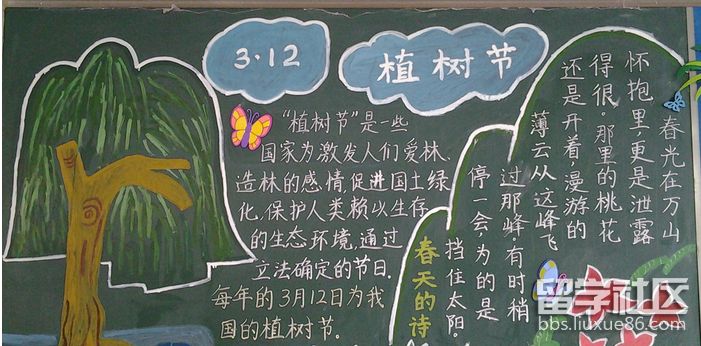 3·12
植树节
“植树节”是一些
国家为激发人们爱林、
造林的感情,促进国土绿
化,保护人类赖以生存
的生态环境,通过
立法确定的节日.
每年的3月12日为我
国的植树节.
春天的诗
春光在万山
怀抱里,更是泄露
得很。那里的桃花
还是开着。漫游的
薄云从这峰飞
过那峰,有时稍
停一会,为的是
挡住太阳,
留学社区
bbs.liuxue86.com